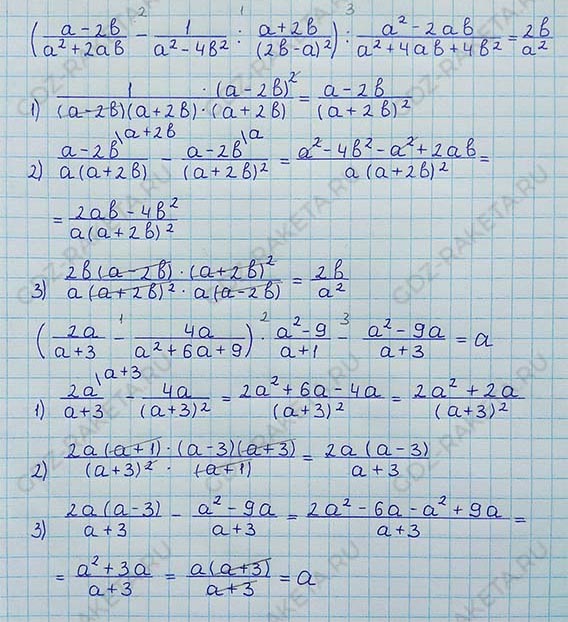 ( (a-2b)/(a²+2ab) -² 1/(a²-4b²) :¹ (a+2b)/(2b-a)² ) :³ (a²-2ab)/(a²+4ab+4b²) = 2b/a²
1) (1 · (a-2b)²)/((a-2b)(a+2b)·(a+2b)) = (a-2b)/(a+2b)²
2) (a-2b)\a+2b/(a(a+2b)) - (a-2b)\a/(a+2b)² = (a²-4b²-a²+2ab)/(a(a+2b)²) =
= (2ab-4b²)/(a(a+2b)²)
3) (2b(a-2b)·(a+2b)²)/(a(a+2b)²·a(a-2b)) = 2b/a²
( 2a/(a+3) -¹ 4a/(a²+6a+9) ) ·² (a²-9)/(a+1) -³ (a²-9a)/(a+3) = a
1) 2a\a+3/(a+3) - 4a/(a+3)² = (2a²+6a-4a)/(a+3)² = (2a²+2a)/(a+3)²
2) (2a(a+1)·(a-3)(a+3))/((a+3)²·(a+1)) = (2a(a-3))/(a+3)
3) (2a(a-3))/(a+3) - (a²-9a)/(a+3) = (2a²-6a-a²+9a)/(a+3) =
= (a²+3a)/(a+3) = (a(a+3))/(a+3) = a
GDZ-RAKETA.RU